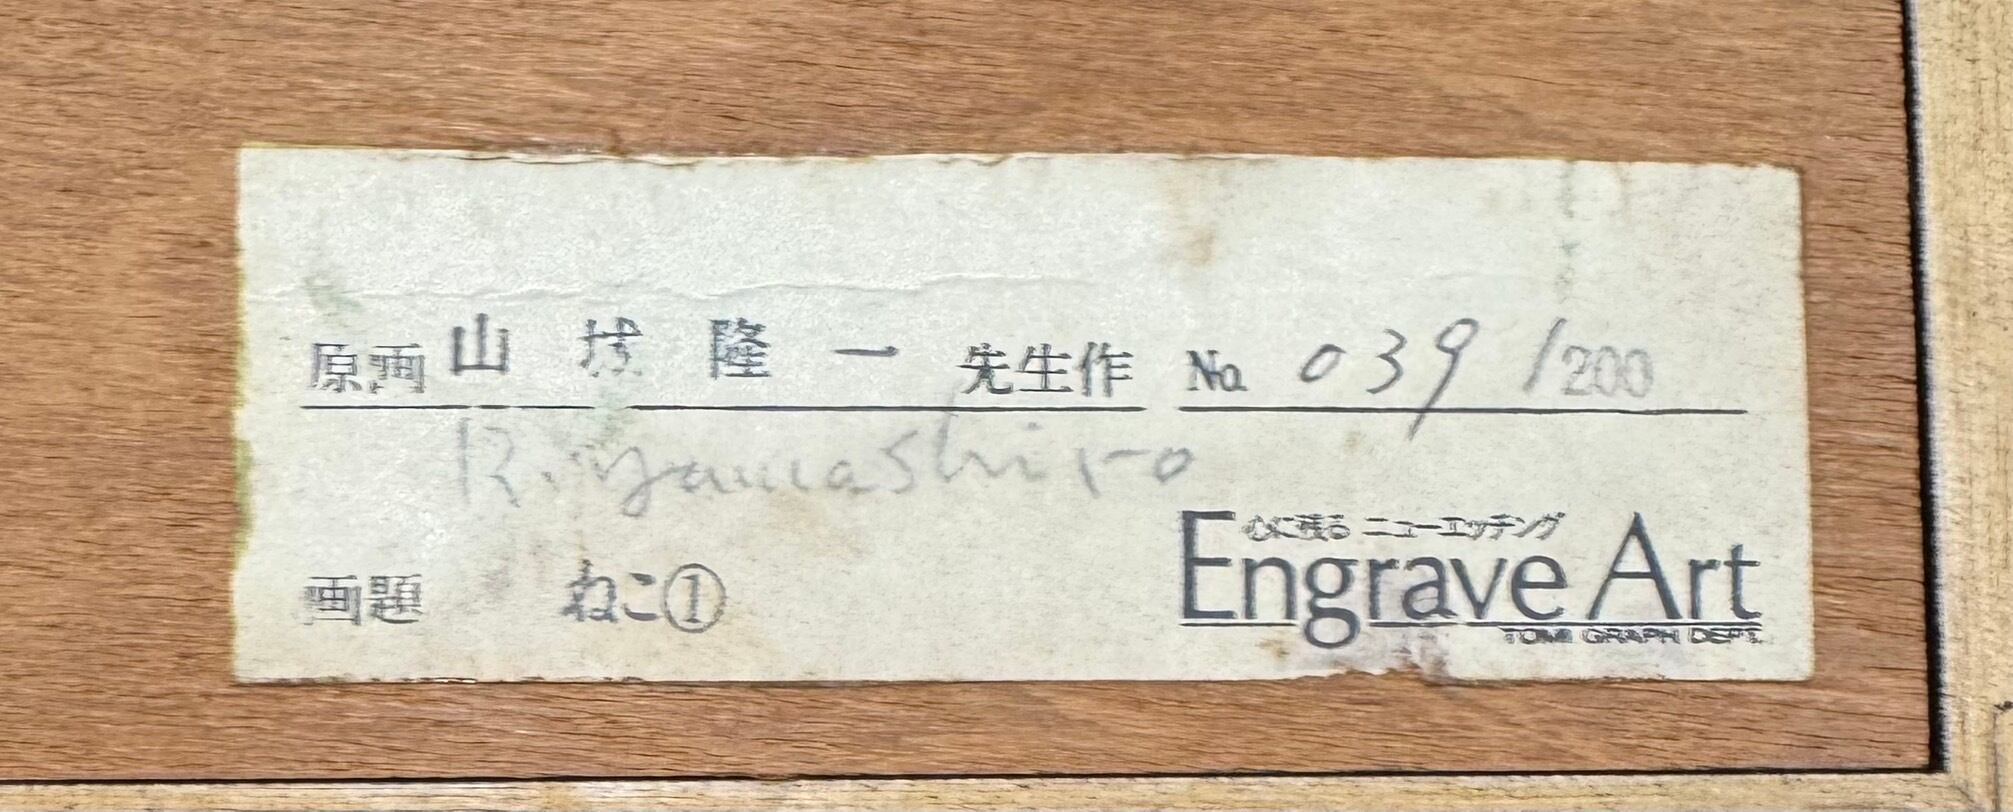 原画 山城隆一 先生作 No. 039 /200
R. yamashiro
画題 ねこ①
心に残る ニューエッチング
Engrave Art
TOMI GRAPH DEPT.